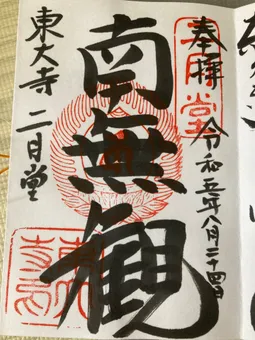 奉拝
令和五年八月二十四日
二月堂
南無観
東大寺 二月堂